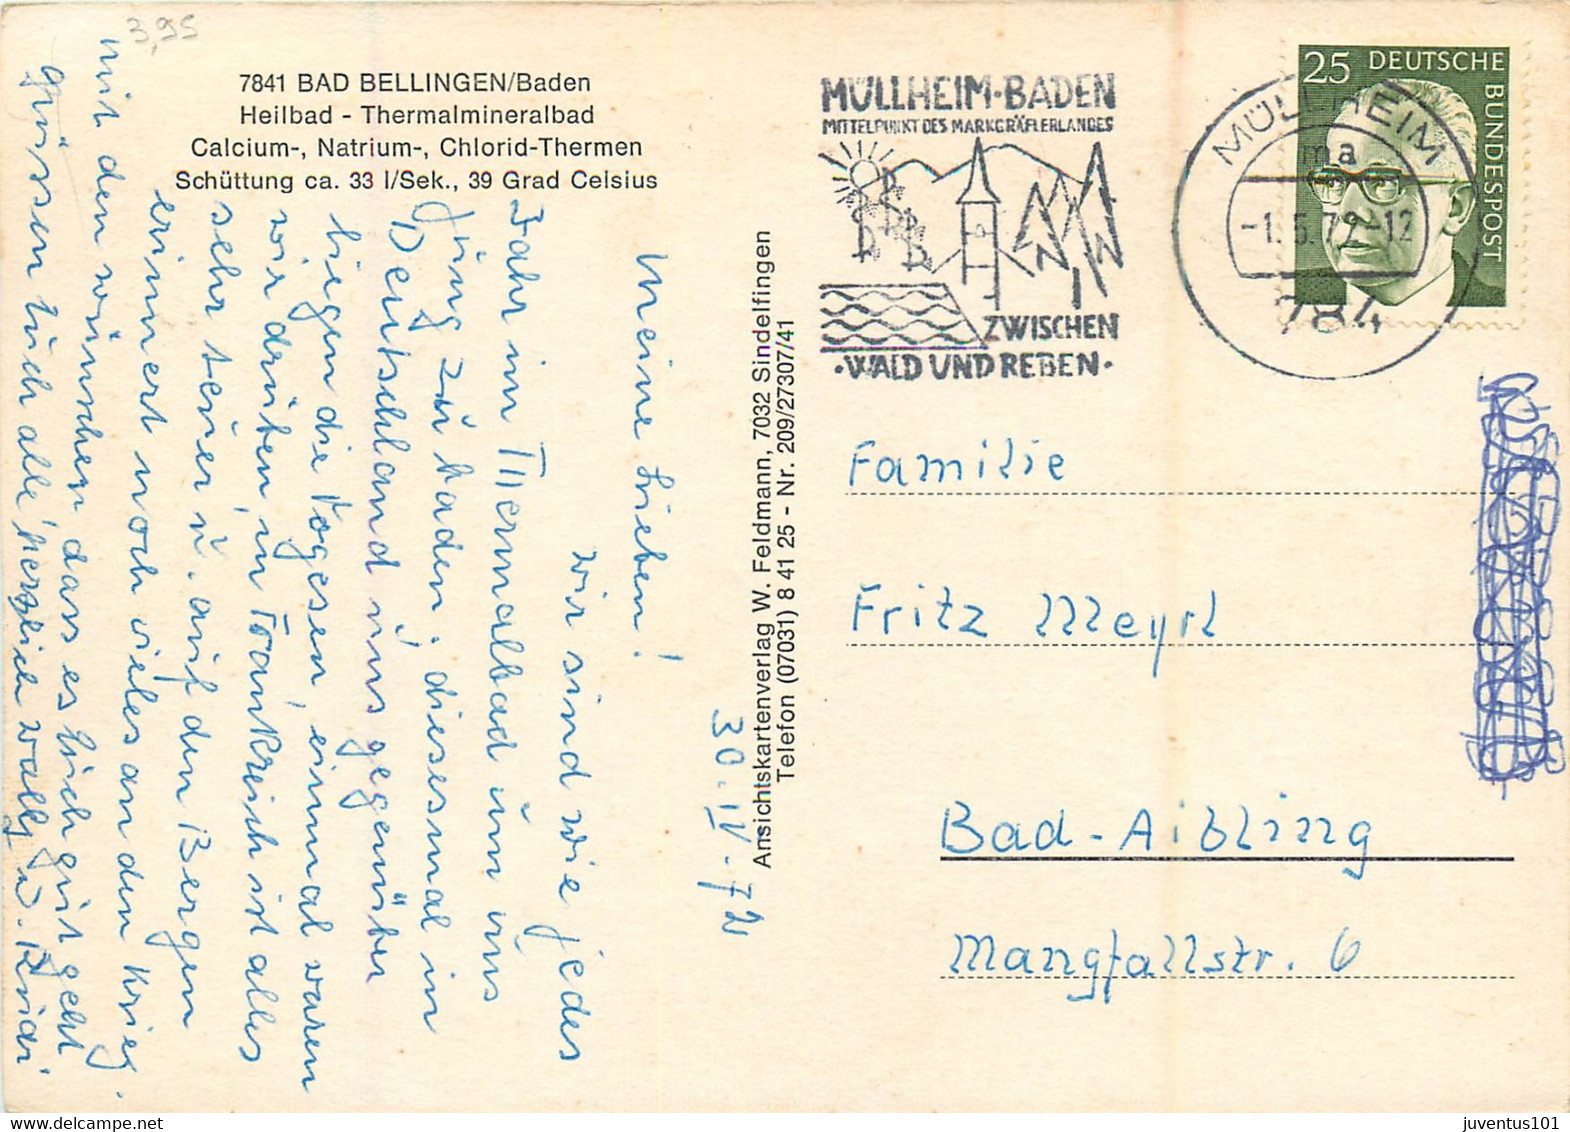 3,95
7841 BAD BELLINGEN/Baden
Heilbad - Thermalmineralbad
Calcium-, Natrium-, Chlorid-Thermen
Schüttung ca. 33 l/Sek., 39 Grad Celsius
30.IV.72
Meine Lieben!
Wir sind wie jedes
Jahr im Thermalbad um uns
jung zu baden, diesesmal in
Deutschland uns gegenüber
liegen die Vogesen, einmal waren
wir drüben, in Frankreich ist alles
sehr teuer u. auf den Bergen
erinnert noch vieles an den Krieg.
mit den wünschen dass es Euch gut geht
grüssen Euch alle herzlich Wally u.
Ansichtskartenverlag W. Feldmann, 7032 Sindelfingen
Telefon (07031) 8 41 25 - Nr. 209/27307/41
MÜLLHEIM·BADEN
MITTELPUNKT DES MARKGRÄFLERLANDES
ZWISCHEN
·WALD UND REBEN·
MÜLLHEIM
ma
-1.5.72-12
784
25 DEUTSCHE
BUNDESPOST
Familie
Fritz Meyrl
Bad-Aibling
Mangfallstr. 6
juventus101